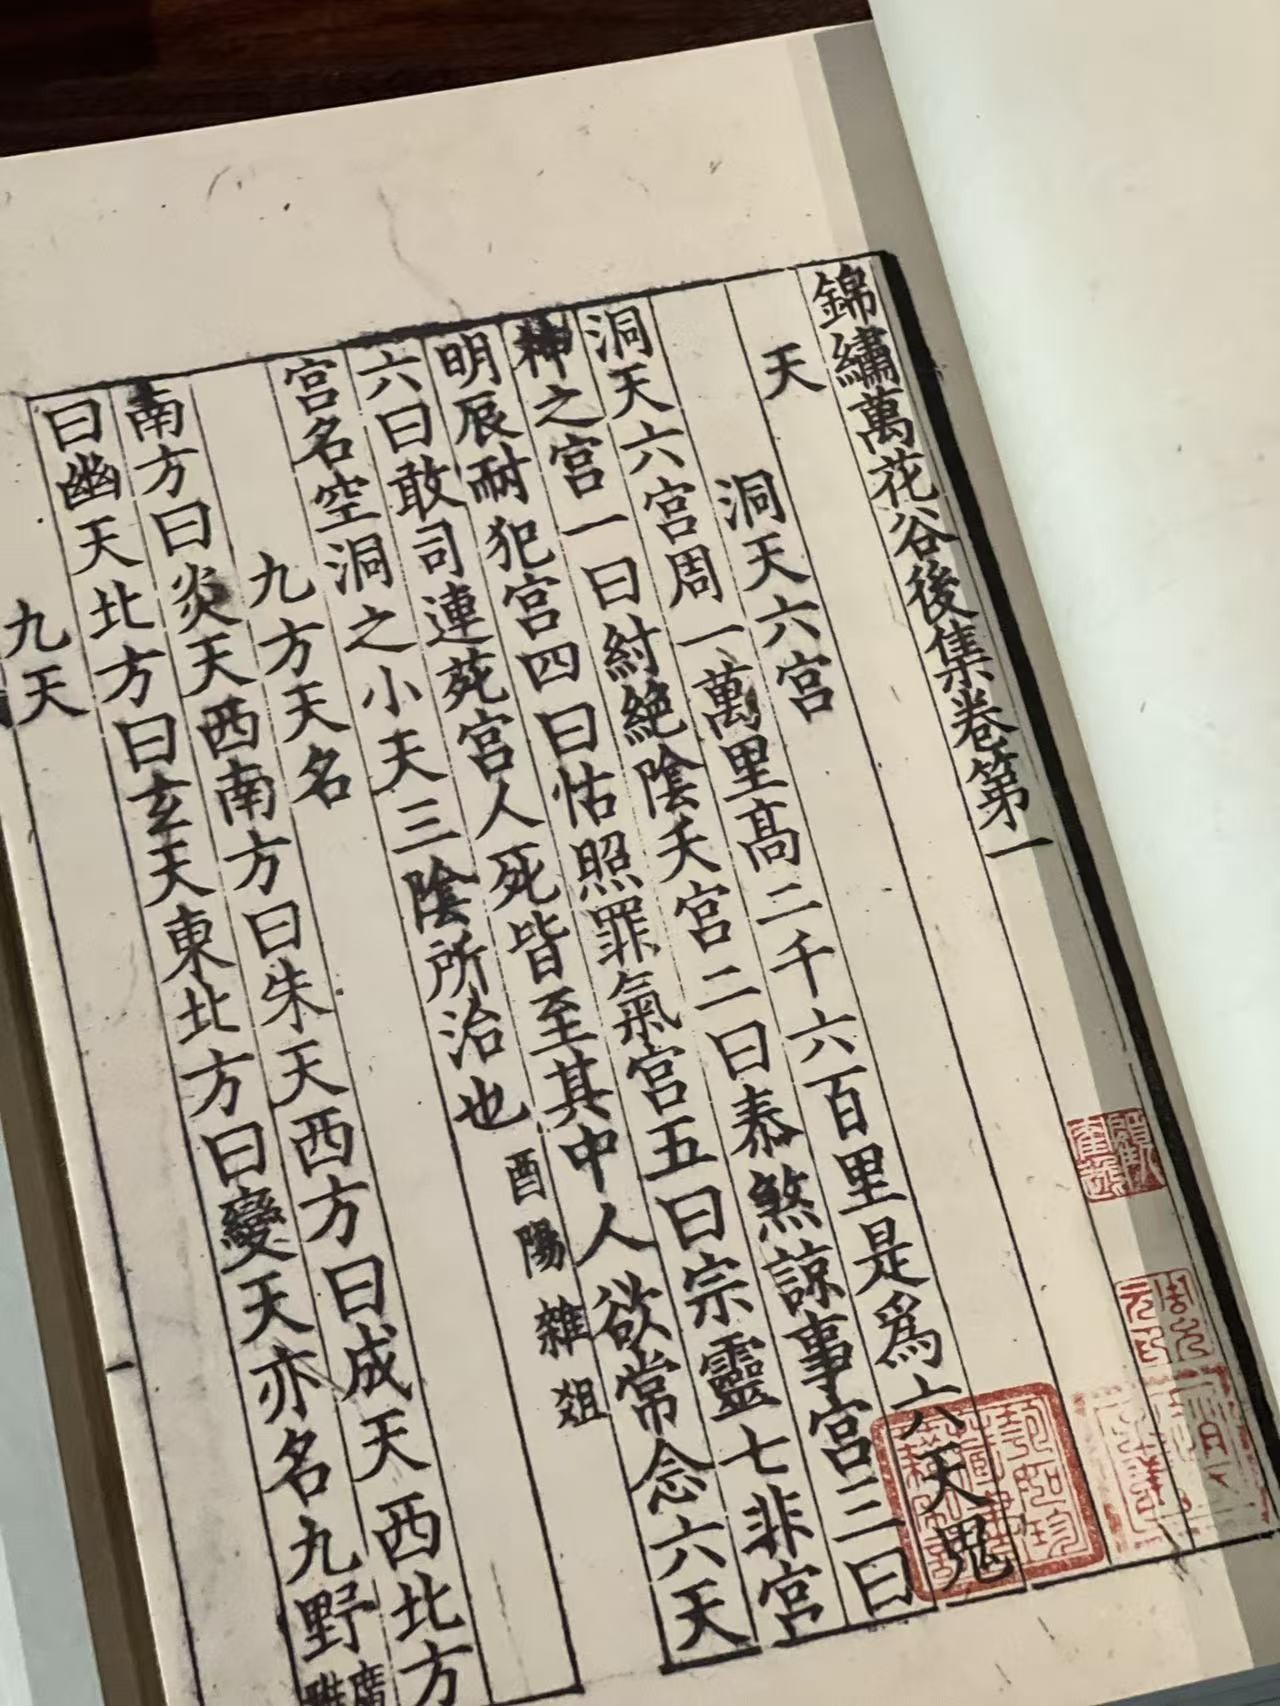 錦繡萬花谷後集卷第一
天
洞天六宮
洞天六宮周一萬里高二千六百里是爲六天鬼
神之宮一曰紂絶陰天宮二曰泰煞諒事宮三曰
明辰耐犯宮四曰怙照罪氣宮五曰宗靈七非宮
六曰敢司連菀宮人死皆至其中人欲常念六天
宮名空洞之小天三陰所治也酉陽雜俎
九方天名
南方曰炎天西南方曰朱天西方曰成天西北方
曰幽天北方曰玄天東北方曰變天亦名九野廣雅
九天